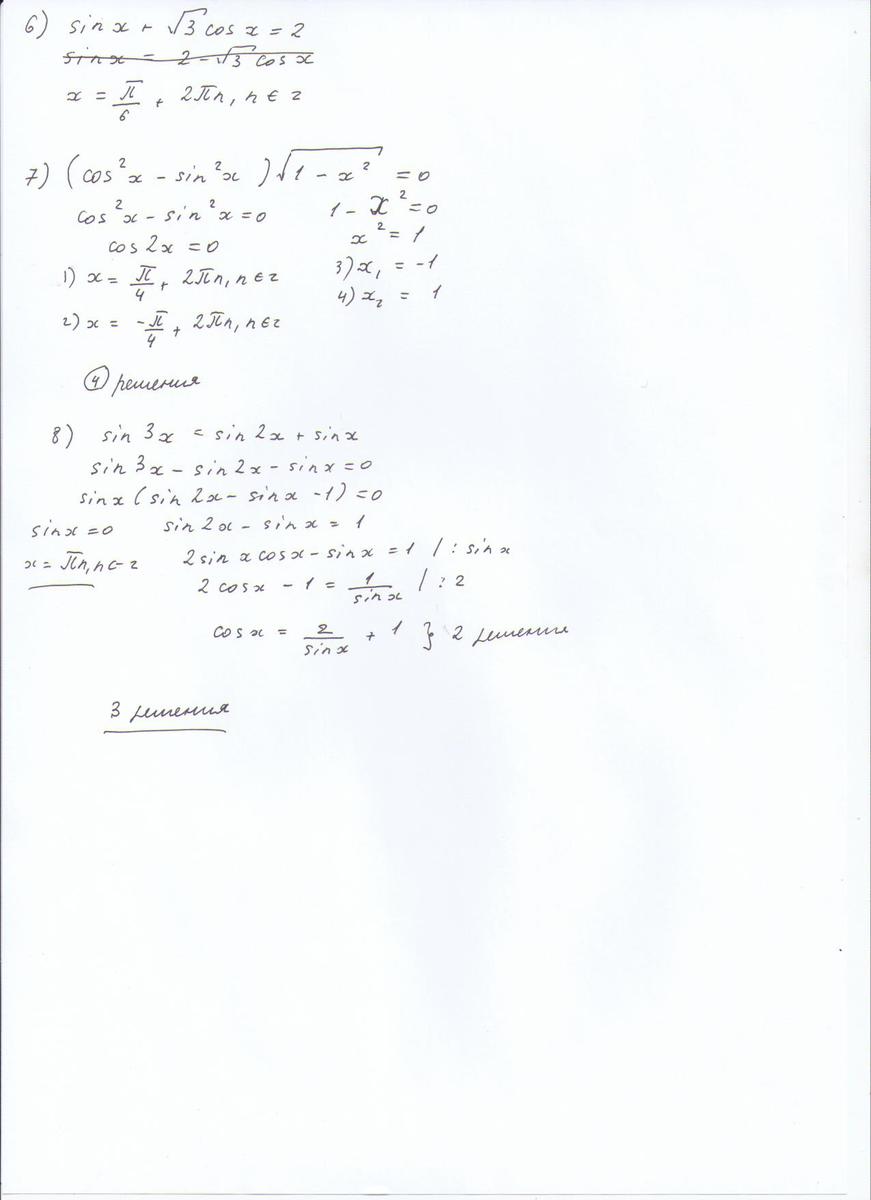 6) sin x + √3 cos x = 2
sin x = 2 - √3 cos x
x = π/6 + 2πn, n ∈ z
7) (cos²x - sin²x)√(1 - x²) = 0
cos²x - sin²x = 0    1 - x² = 0
cos 2x = 0    x² = 1
1) x = π/4 + 2πn, n ∈ z    3) x₁ = -1
2) x = -π/4 + 2πn, n ∈ z    4) x₂ = 1
④ решения
8) sin 3x = sin 2x + sin x
sin 3x - sin 2x - sin x = 0
sin x (sin 2x - sin x - 1) = 0
sin x = 0    sin 2x - sin x = 1
x = πn, n ∈ z    2 sin x cos x - sin x = 1 / : sin x
2 cos x - 1 = 1/sin x / : 2
cos x = 2/sin x + 1 } 2 решения
3 решения